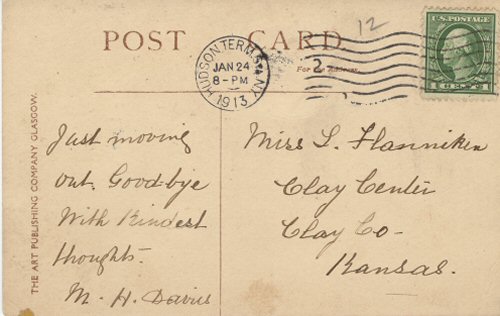 12
POST CARD.
U.S. POSTAGE
HUDSON TERM. STA. N.Y.
JAN 24
8-PM
1913
2
For the Address.
1 CENT 1
THE ART PUBLISHING COMPANY GLASGOW.
Just moving
out. Good-bye
With Kindest
thoughts.
M. H. Davies
Miss L. Flanniken
Clay Center
Clay Co-
Kansas.